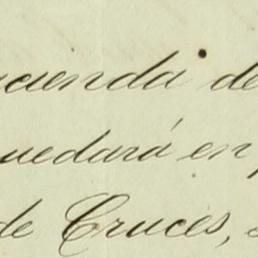 cienda de
quedará en
de Cruces,